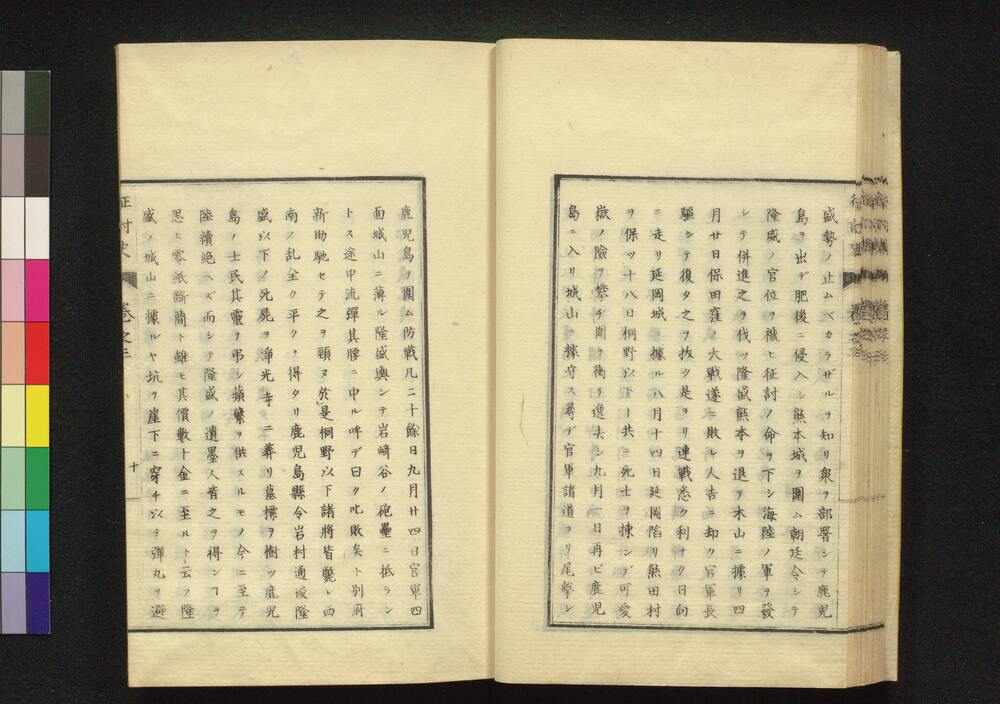 盛勢ノ止ムベカラザルヲ知リ衆ヲ部署シテ鹿児
島ヲ出デ肥後ニ侵入シ熊本城ヲ圍ム朝廷令シテ
隆盛ノ官位ヲ褫ヒ征討ノ命ヲ下シ海陸ノ軍ヲ發
シテ併進之ヲ伐ツ隆盛熊本ヲ退テ木山ニ據リ四
月廿日保田窪ノ大戰遂ニ敗レ人吉ニ却ク官軍長
驅シテ復タ之ヲ抜ク是ヨリ連戰悉ク利ナク日向
ニ走リ延岡城ニ據ル八月十四日延岡陷リ熊田村
ヲ保ツ十八日桐野以下ト共ニ死士ヲ揀ンデ可愛
嶽ノ險ヲ攀ヂ圍ヲ衝テ逸去シ九月一日再ビ鹿児
島ニ入リ城山ニ據守ス尋デ官軍諸道ヨリ尾撃シ
鹿児島ヲ圍ム防戰凡ニ十餘日九月廿四日官軍四
面城山ニ薄ル隆盛輿シテ岩﨑谷ノ砲壘ニ抵ラン
トス途中流彈其腰ニ中ル呼デ曰ク叱敗矣ト別府
新助馳セテ之ヲ頸ヌ於是桐野以下諸將皆斃レ四
南ノ乱全ク平クヿ得タリ鹿児島縣令岩村通俊隆
盛以下ノ死屍ヲ淨光寺ニ葬リ墓標ヲ樹ツ鹿児
島ノ士民其靈ヲ弔シ蘋蘩ヲ供スルモノ今ニ至テ
陸續絶ヘズ而シテ隆盛ノ遺墨人皆之ヲ得ンヿヲ
思ヒ零紙斷簡ト雖モ其價數十金ニ至ルト云フ隆
盛ノ城山ニ據ルヤ坑ヲ崖下ニ穿チ以テ彈丸ヲ避
征討史 卷之三 十